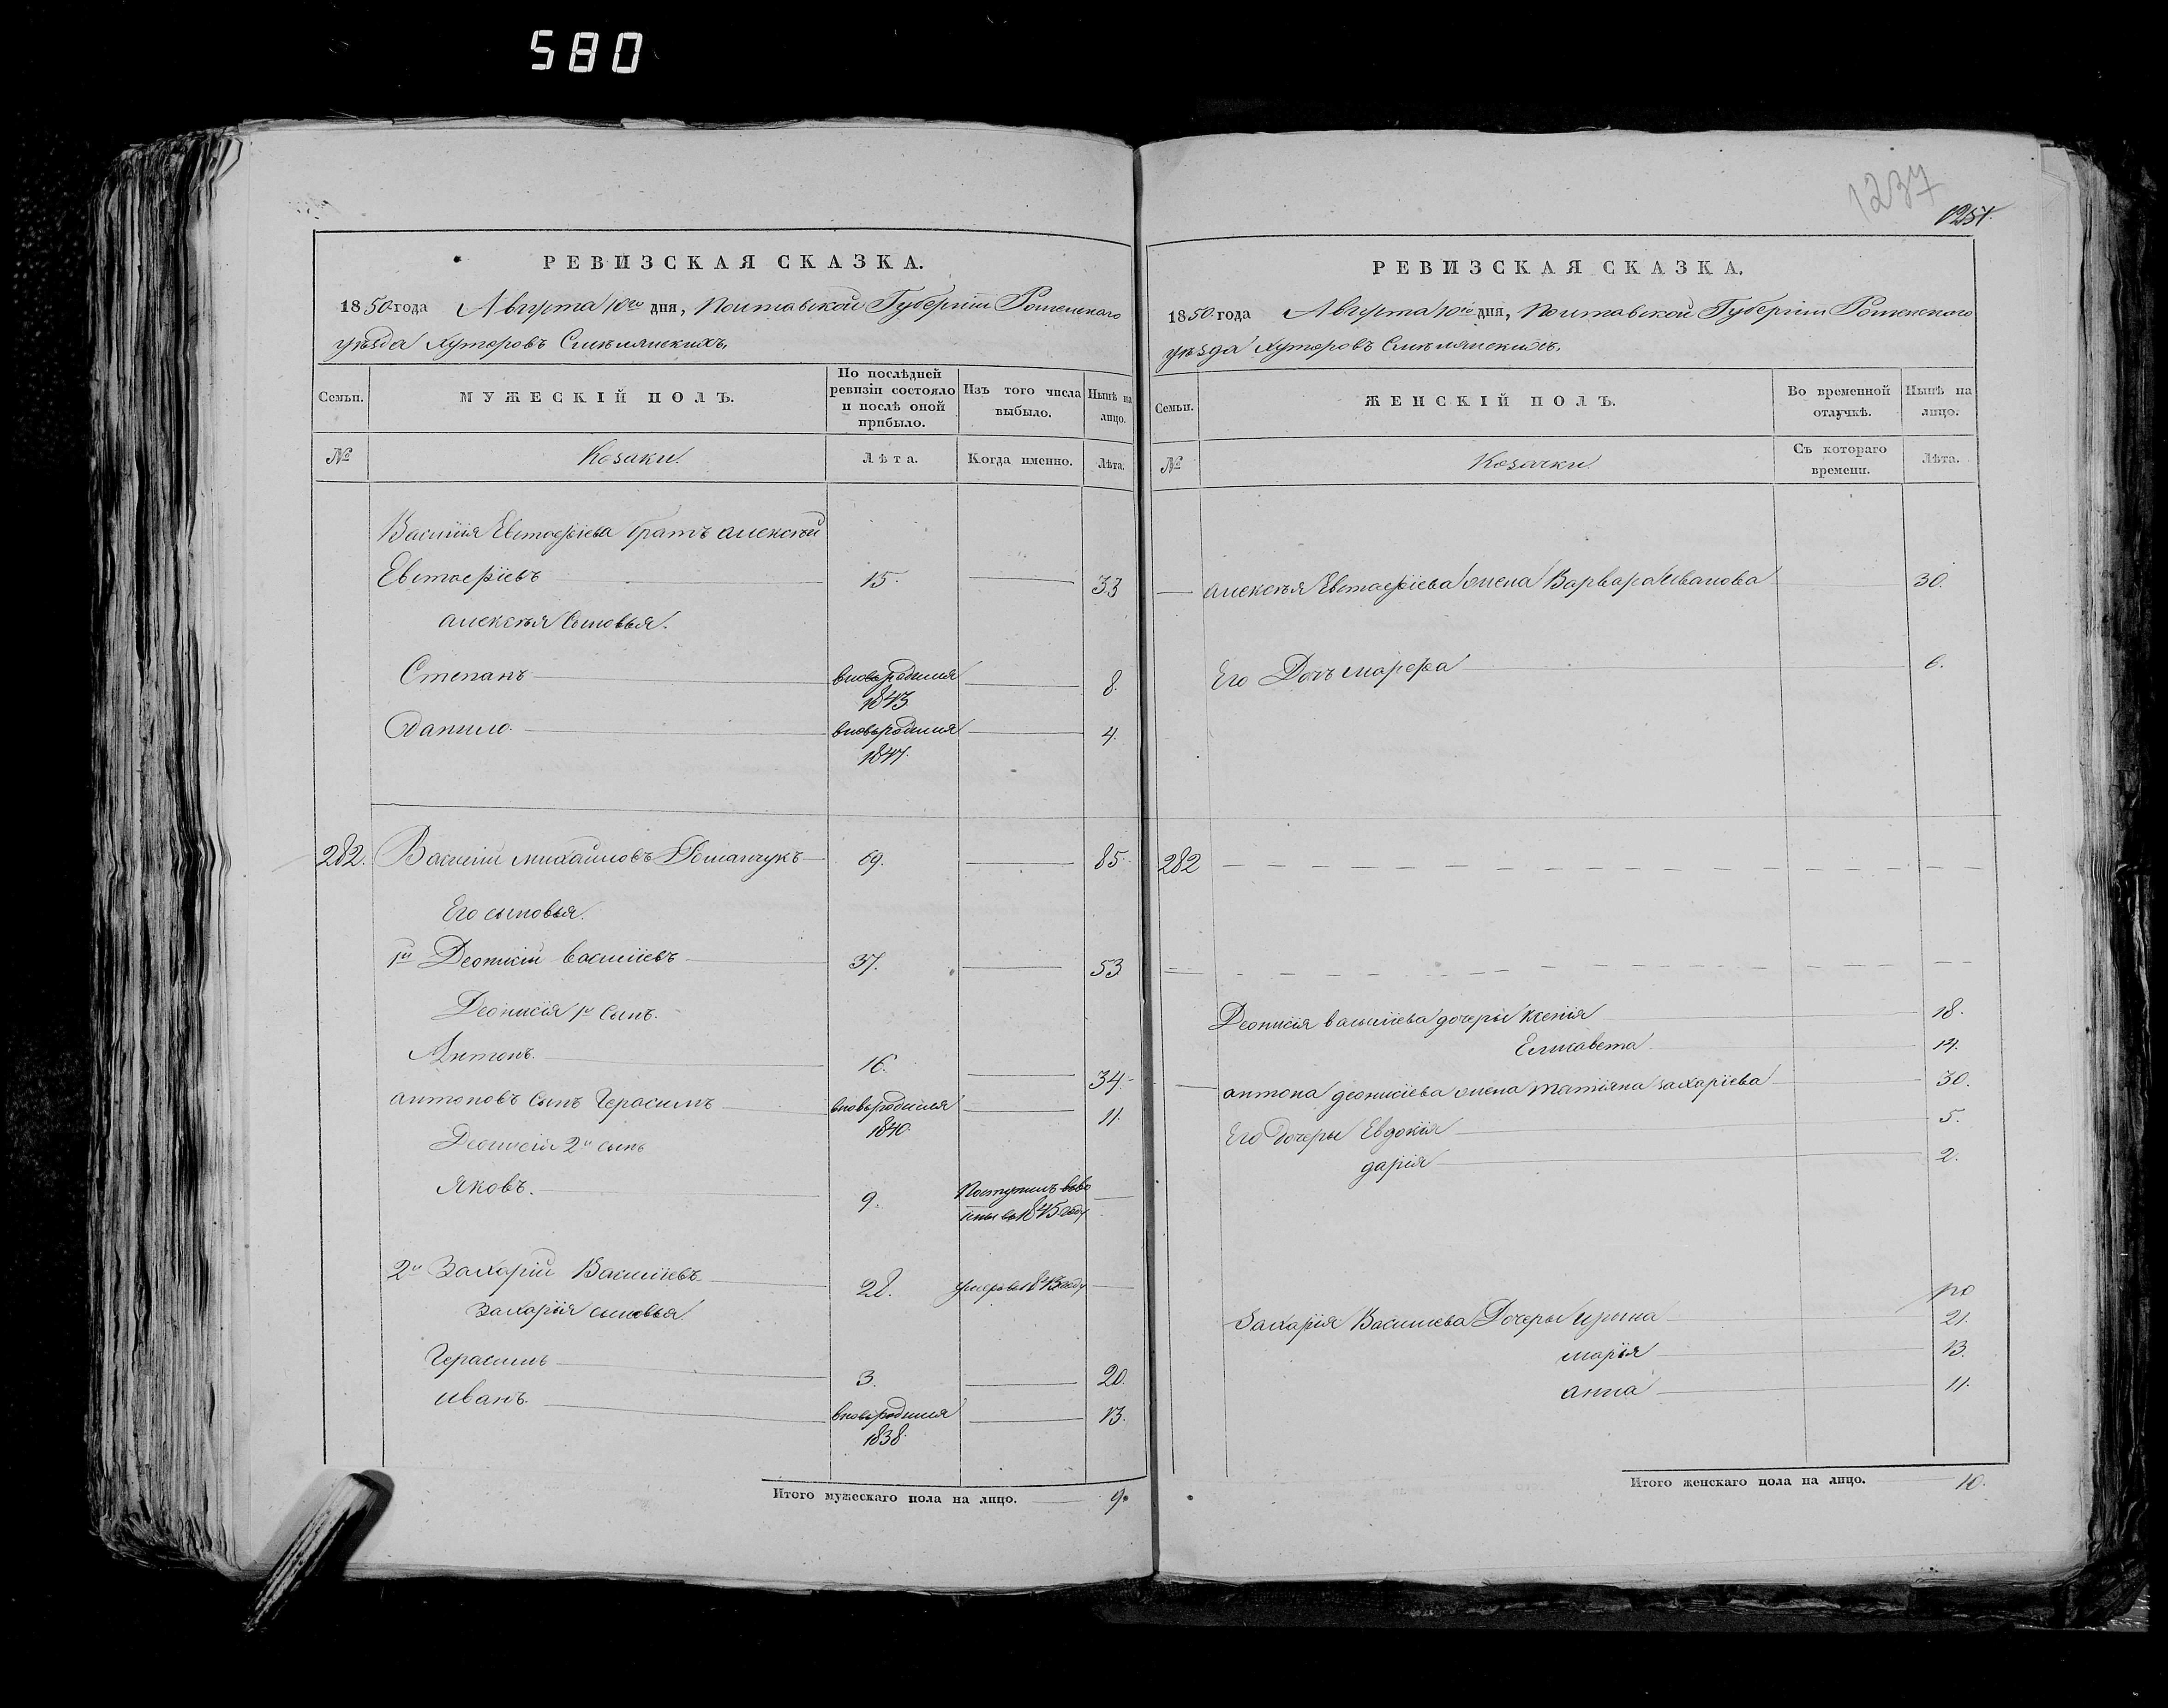 580
РЕВИЗСКАЯ СКАЗКА.
1850 года Августа 10го дня, Полтавской Губернiи Роменскаго
уѣзда Хуторовъ Смѣлянскихъ,
Семьи.
МУЖЕСКІЙ ПОЛЪ.
По послѣдней ревизіи состояло и послѣ оной прибыло.
Изъ того числа выбыло.
Нынѣ на лицо.
№
Козаки.
Лѣта.
Когда именно.
Лѣта.
Василія Евстафіева братъ Алексѣй
Евстафіевъ 15. 33
Алексѣя Сыновья.
Степанъ вновьродился 8.
1843
Данило. вновьродился 4.
1847.
282. Василій Михайловъ Романчукъ 69. 85.
Его сыновья.
1й Деонисій Василіевъ 37. 53
Деонисія 1й Сынъ.
Антонъ. 16. 34.
Антоновъ Сынъ Герасимъ вновьродился 11.
1840.
Деонисія 2й сынъ
Яковъ. 9. Поступилъ въво
1845 году
2й Захарій Василіевъ 28. умеръ въ 1843 году
Захарія сыновья.
Герасимъ 3. 20.
Иванъ. вновьродился 13.
1838.
Итого мужескаго пола на лицо. 9.
1237
1251.
РЕВИЗСКАЯ СКАЗКА.
1850 года Августа 10го дня, Полтавской Губернiи Роменскаго
уѣзда Хуторовъ Смѣлянскихъ,
Семьи.
ЖЕНСКІЙ ПОЛЪ.
Во временной отлучкѣ.
Нынѣ на лицо.
№
Козачки.
Съ котораго времени.
Лѣта.
Алексѣя Евстафіева жена Варвара Иванова 30.
Его Дочь Марфа 6.
282
Деонисія Василіева дочеры Ксенія 18.
Елисавета 14.
Антона Деонисіева жена Татіяна Захаріева 30.
Его Дочеры Евдокія 5.
Дарія 2.
Захарія Василіева Дочеры Ирина 21.
Марія 13.
Анна 11.
Итого женскаго пола на лицо. 10.